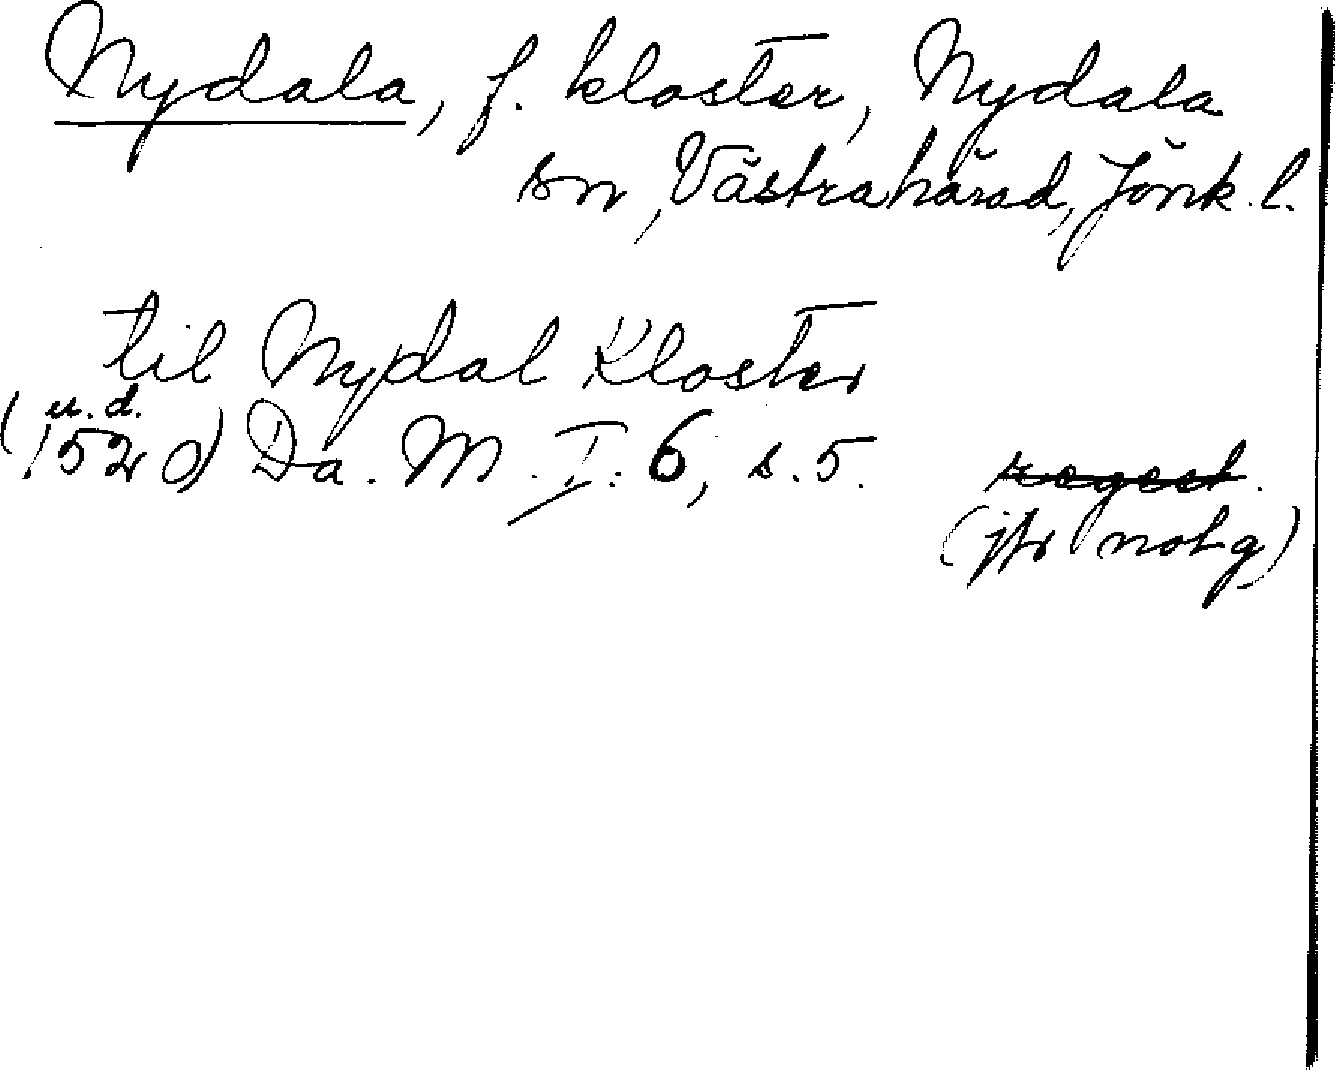 Nydala, f. kloster, Nydala
sn, Västra härad, Jönk. l.
til Nydal Kloster
u. d.
(1520) Da. M. I. 6, s. 5.
regest.
(jfr not g)